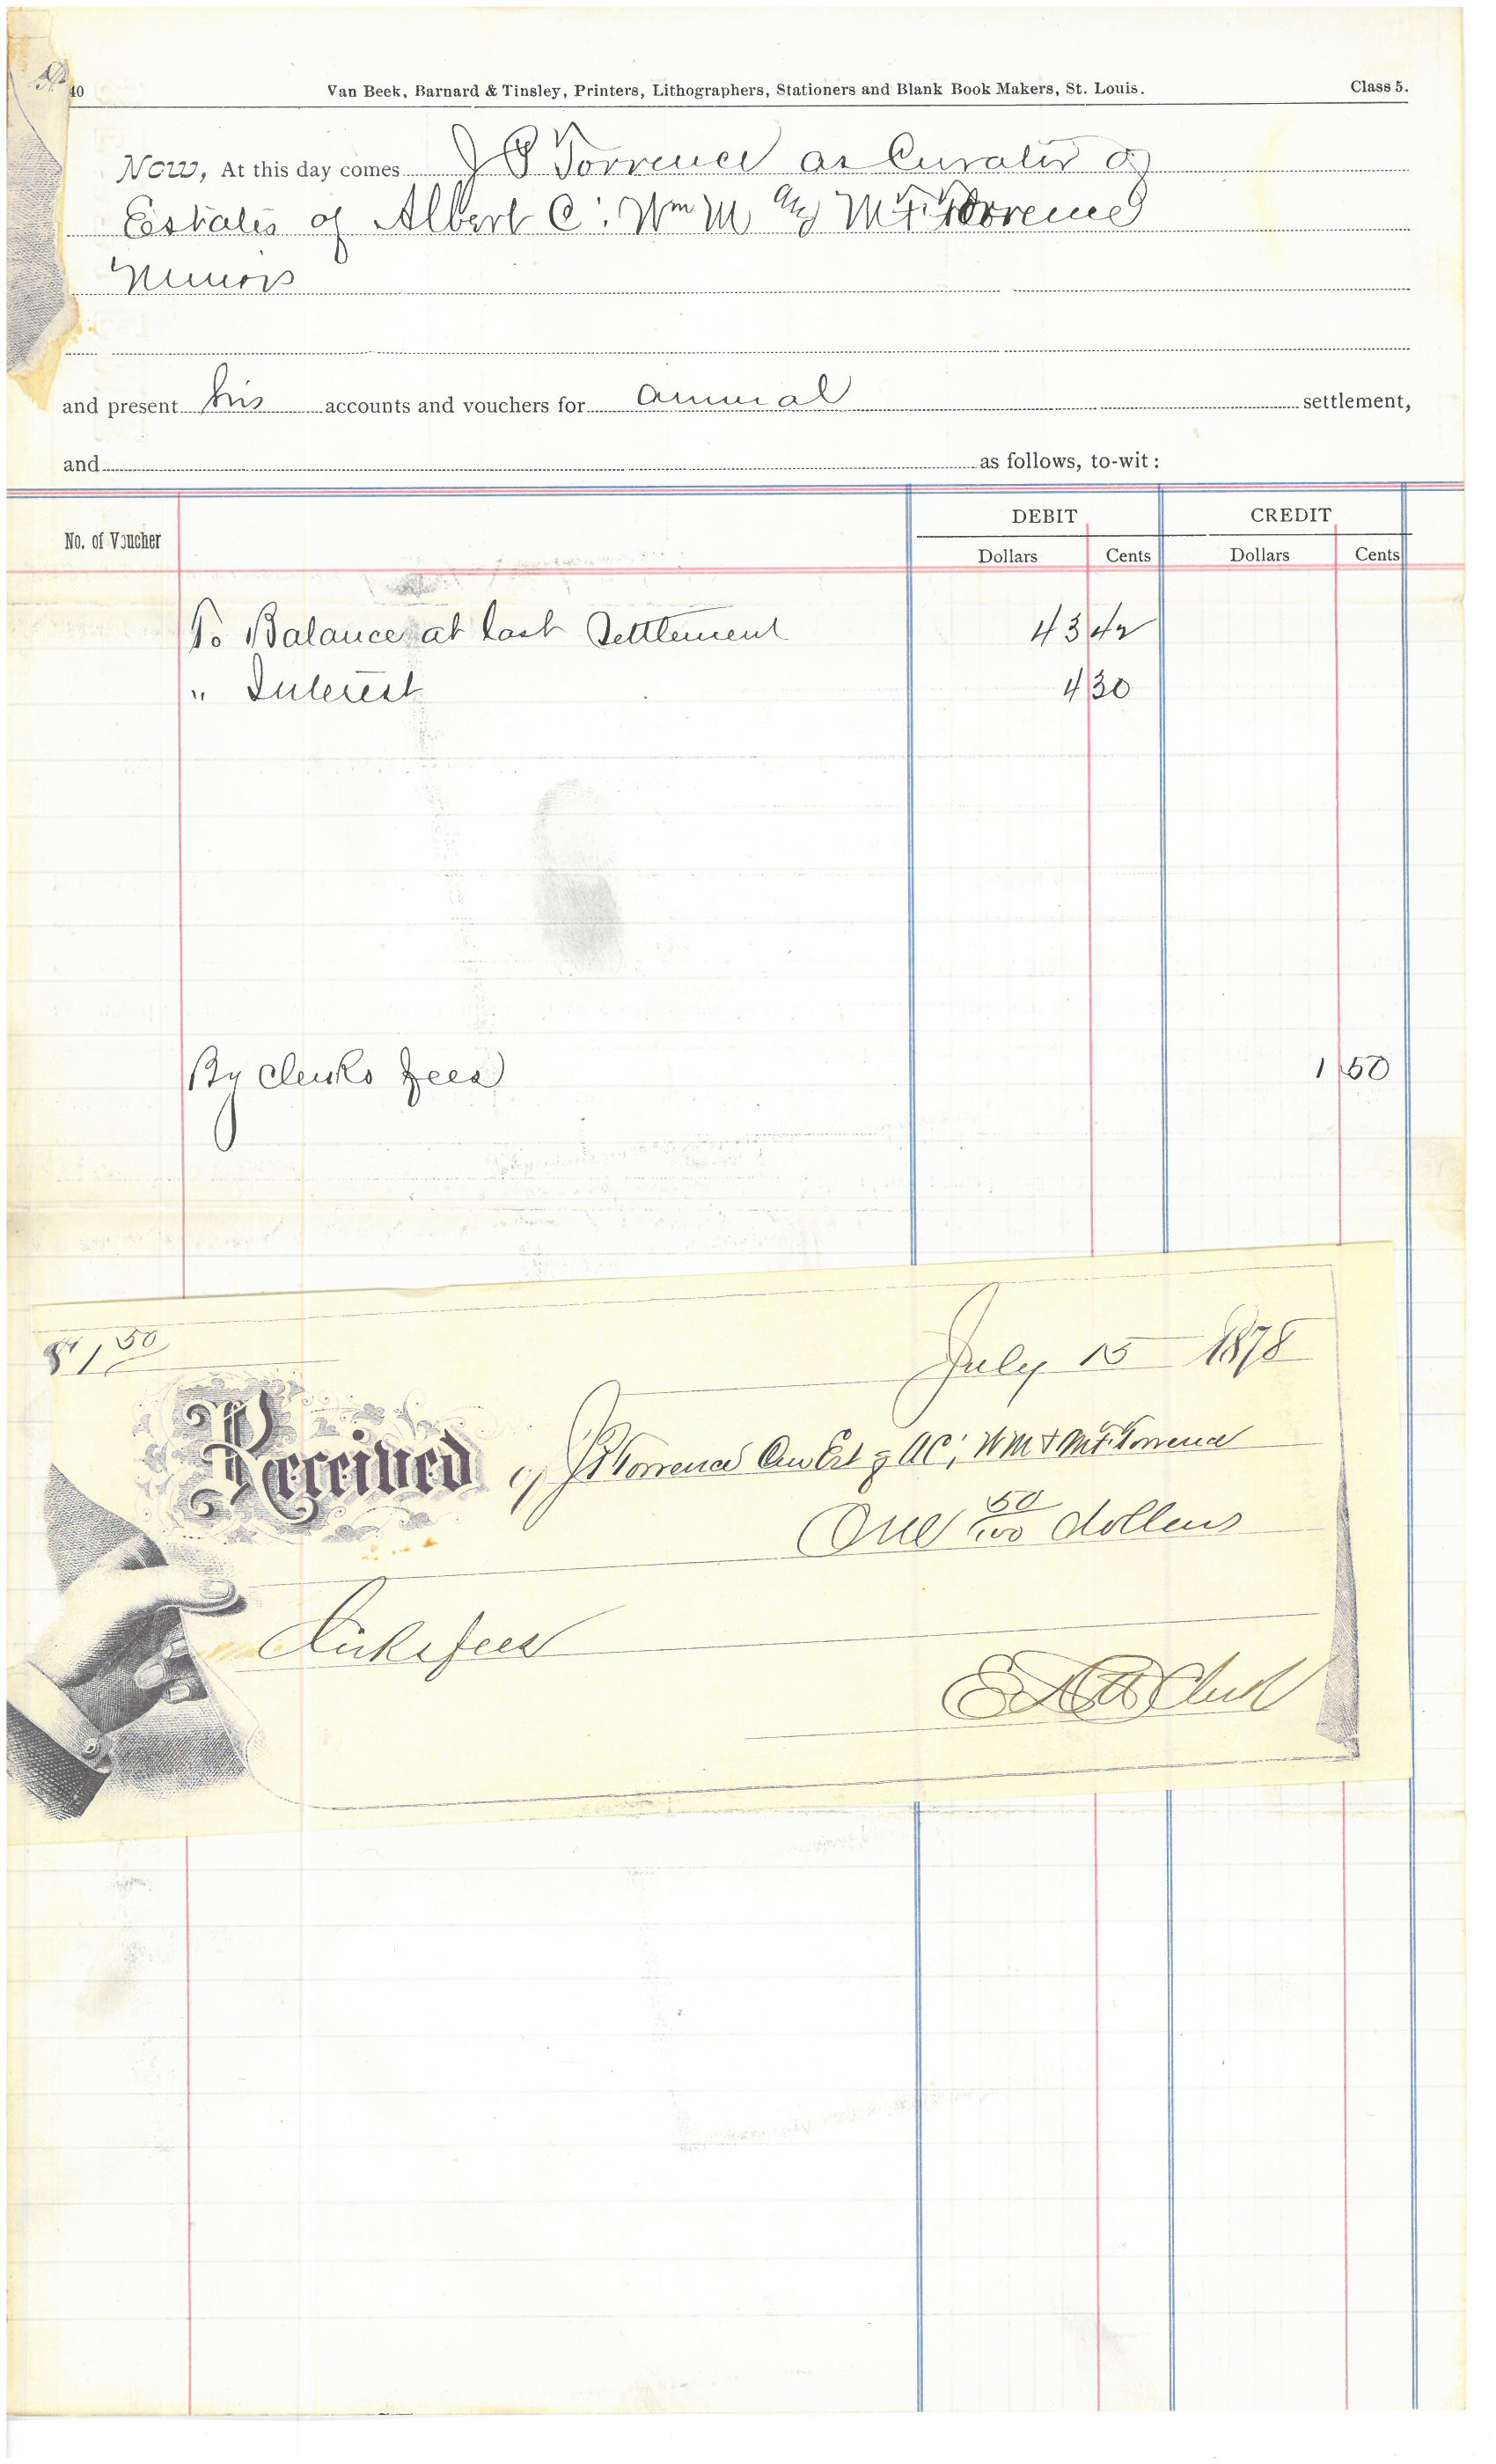 40 Van Beek, Barnard & Tinsley, Printers, Lithographers, Stationers and Blank Book Makers, St. Louis. Class 5.
Now, At this day comes J P Torrence as Curator of
Estates of Albert C. Wm M and M. F. Torrence
Minors
and present his accounts and vouchers for annual settlement,
and as follows, to-wit:
No. of Voucher DEBIT CREDIT
Dollars Cents Dollars Cents
To Balance at last Settlement 43 42
" Interest 4 30
By Clerks fees 1 50
$1 50
July 15 1878
Received of J P Torrence Cur Est of A C, W M & M F Torrence
One 50/100 dollars
Clerks fees
Clerk